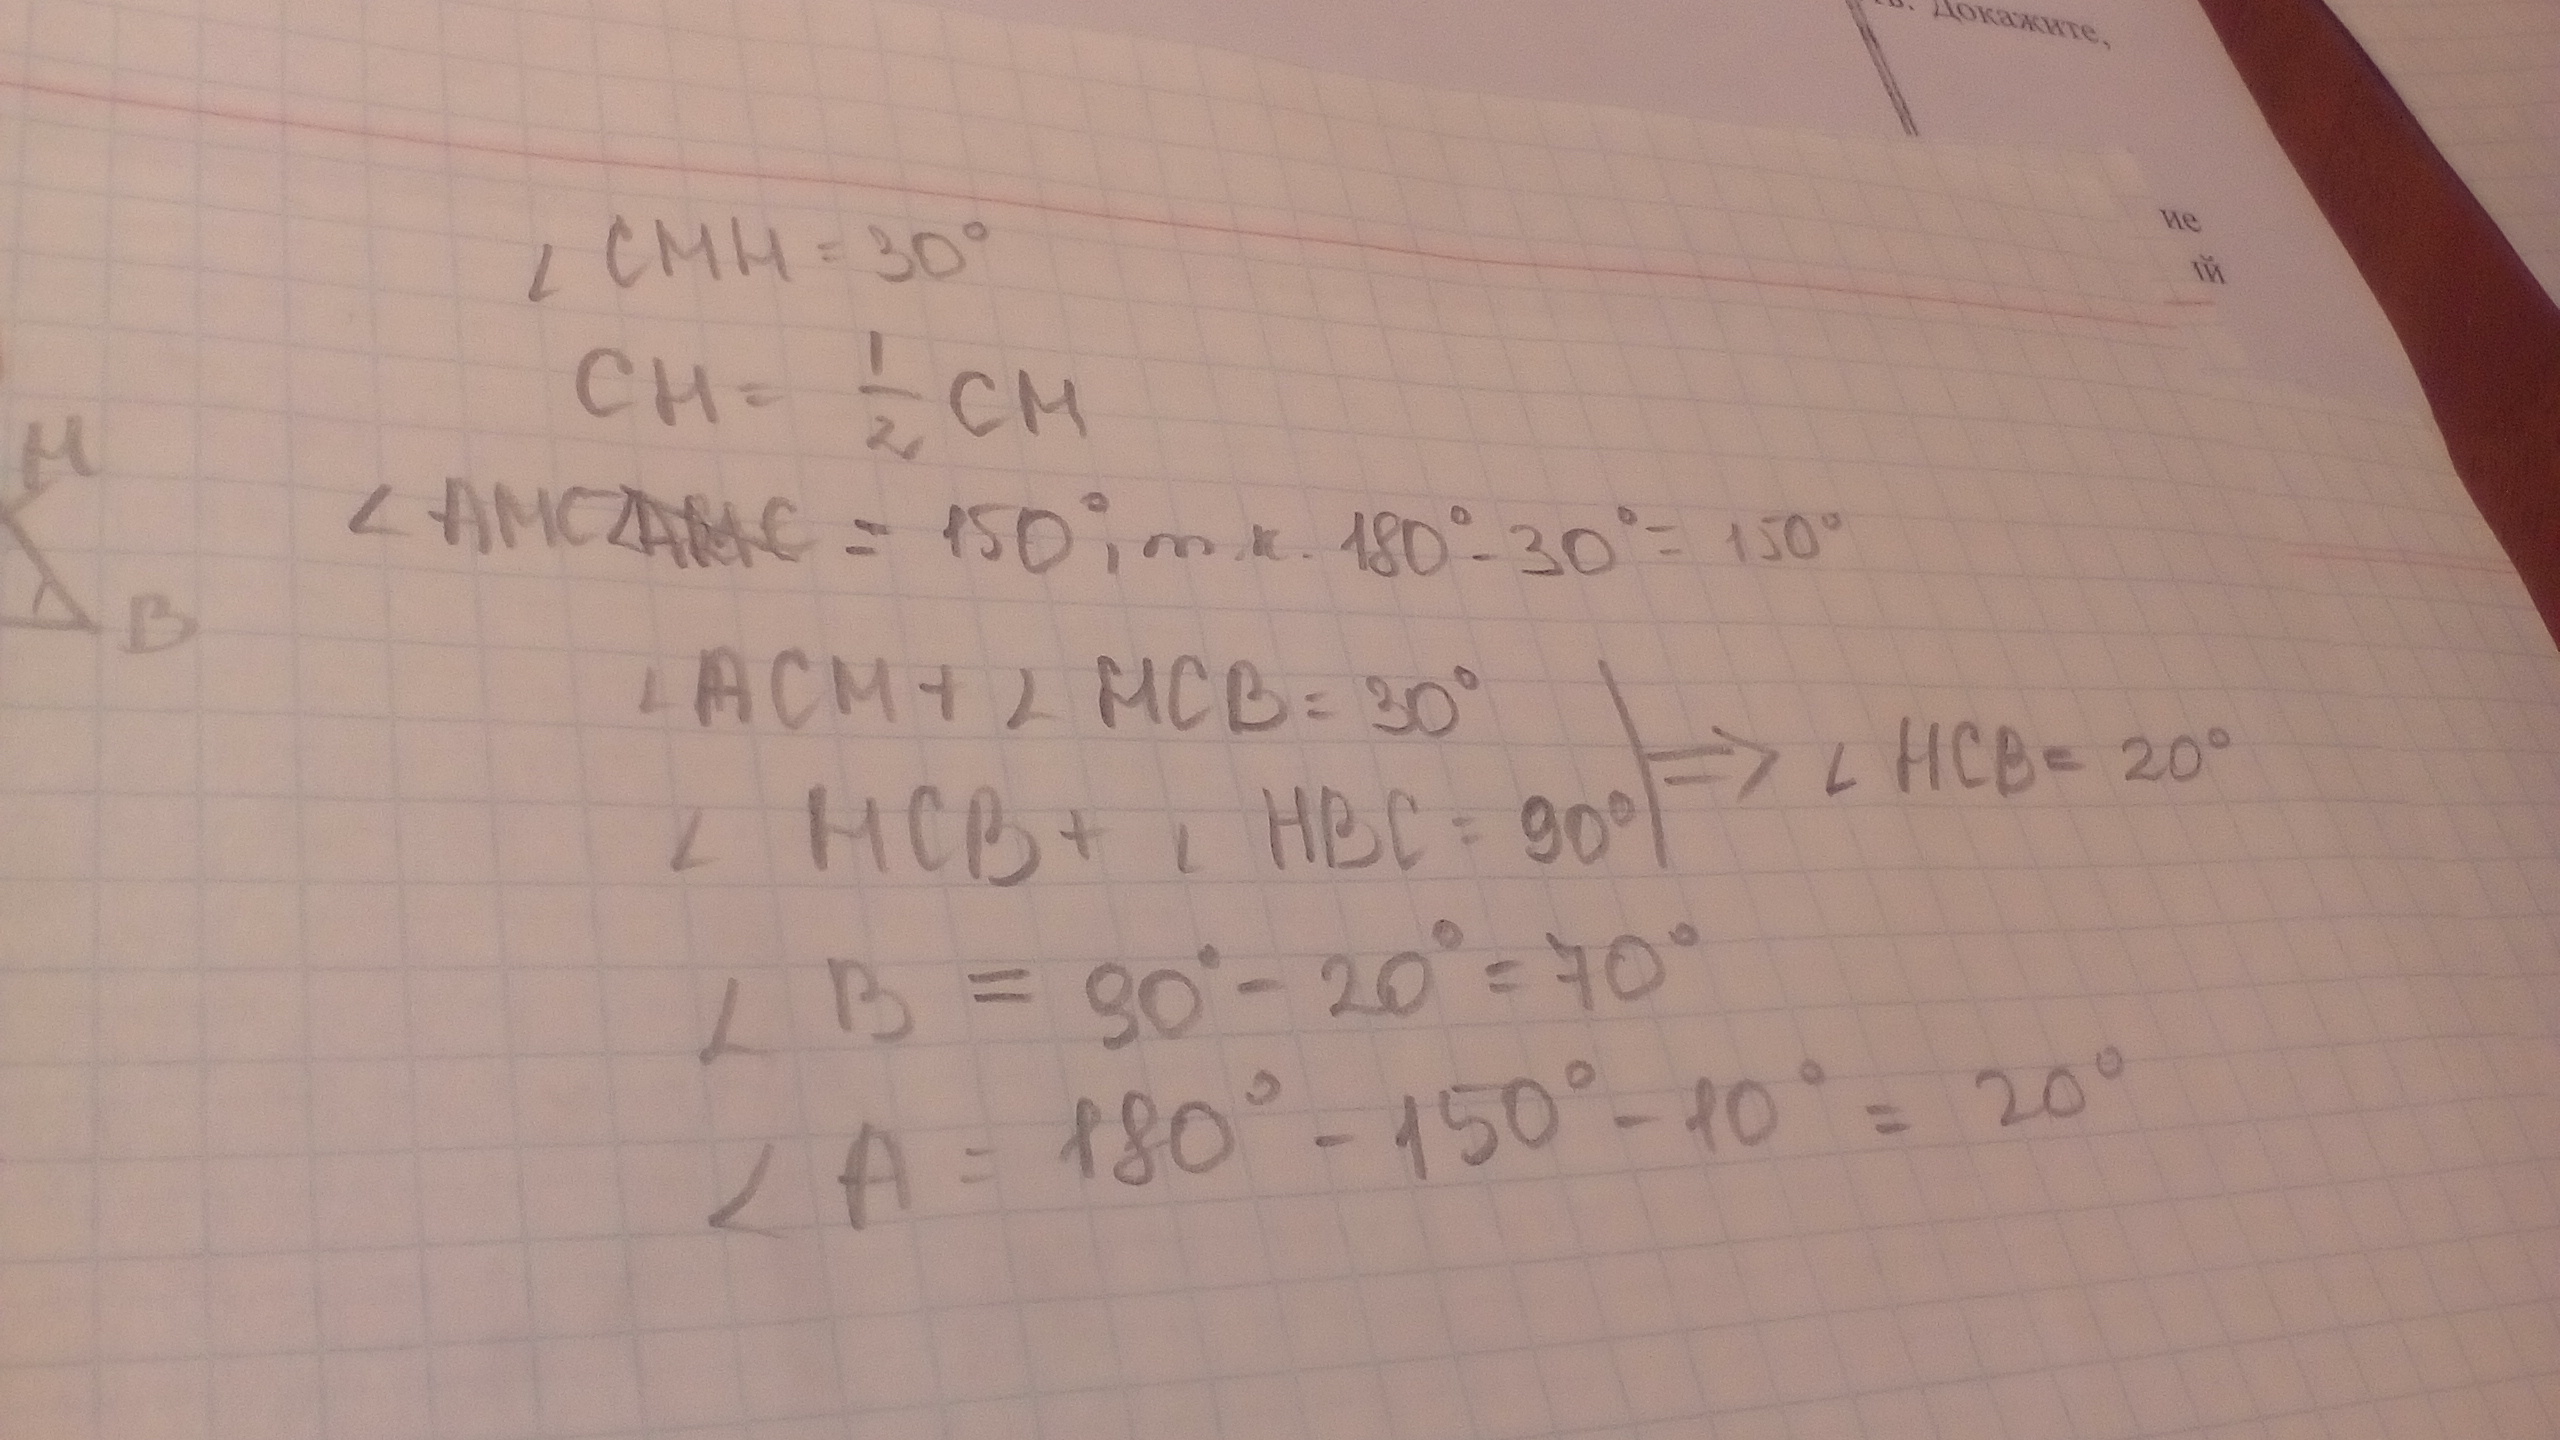 Докажите,
ие
ий
∠ CMH = 30°
CH = 1/2 CM
H
∠ AMC = 150°, т.к. 180° - 30° = 150°
B
∠ACM + ∠ HCB = 30°
∠ HCB + ∠ HBC = 90° => ∠ HCB = 20°
∠ B = 90° - 20° = 70°
∠ A = 180° - 150° - 10° = 20°